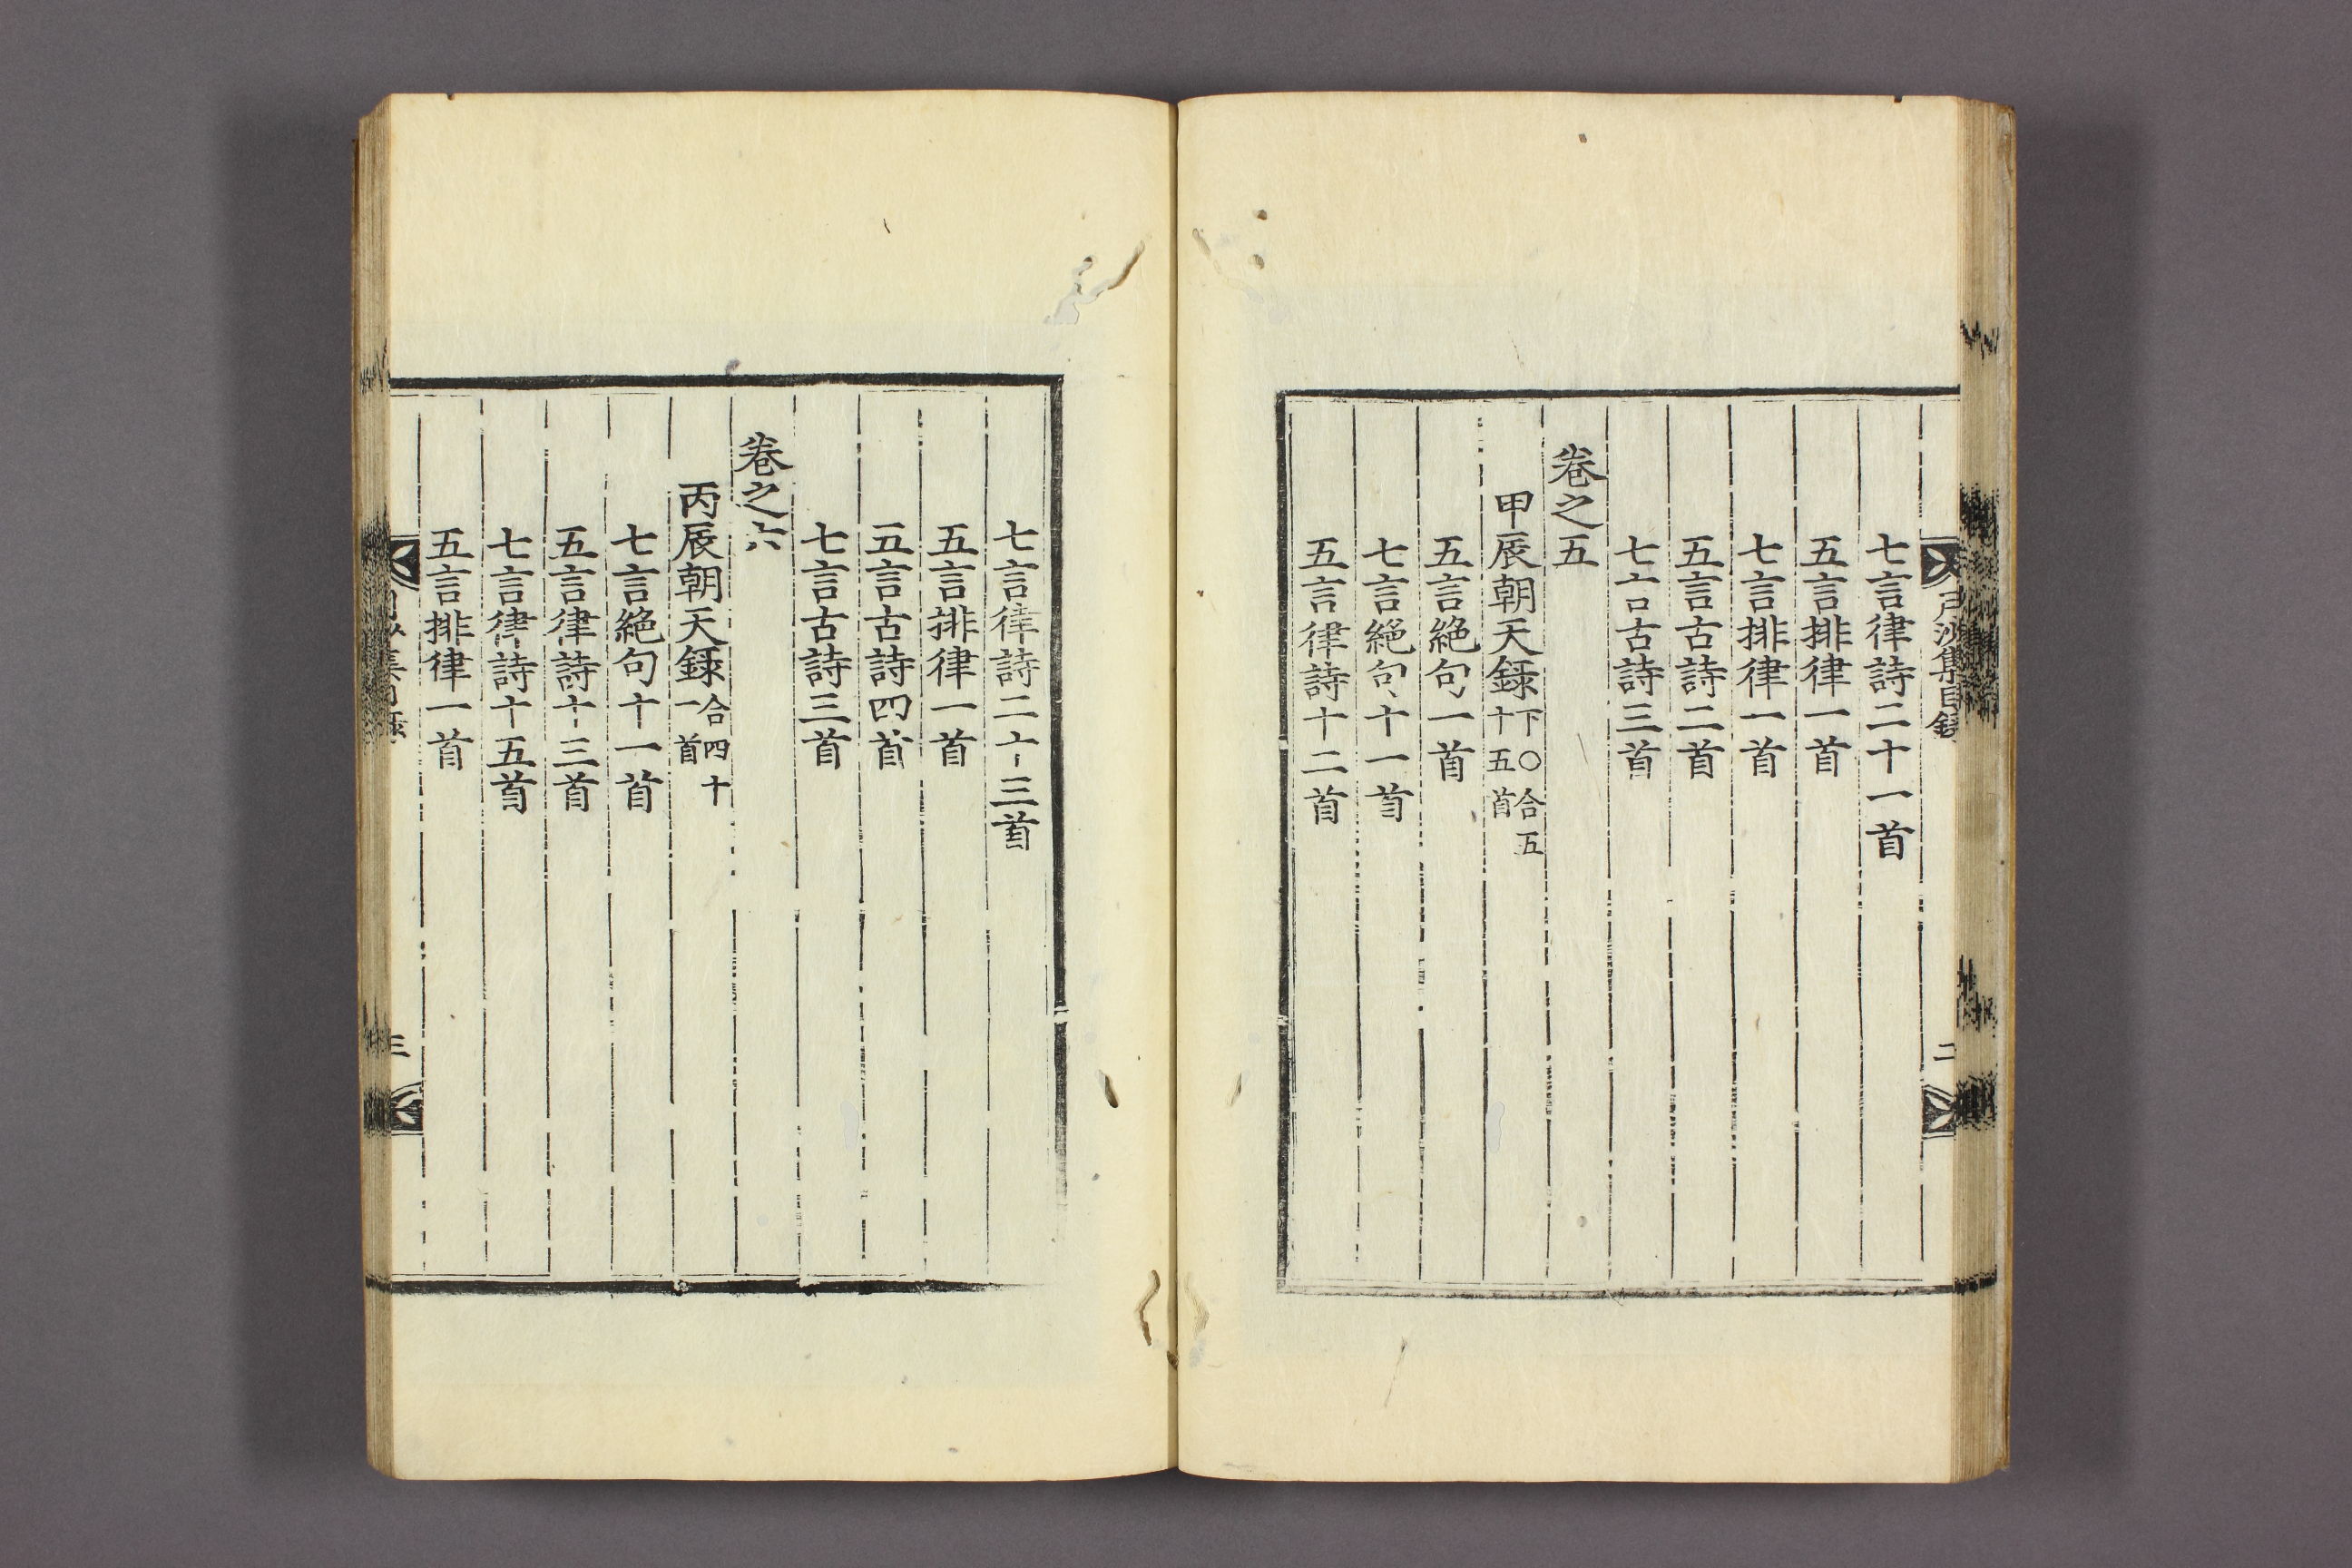 月沙集目錄
二
七言律詩二十一首
五言排律一首
七言排律一首
五言古詩二首
七言古詩三首
卷之五
甲辰朝天錄下○合五十五首
五言絶句一首
七言絶句十一首
五言律詩十二首
七言律詩二十三首
五言排律一首
五言古詩四首
七言古詩三首
卷之六
丙辰朝天錄合四十一首
七言絶句十一首
五言律詩十三首
七言律詩十五首
五言排律一首
三